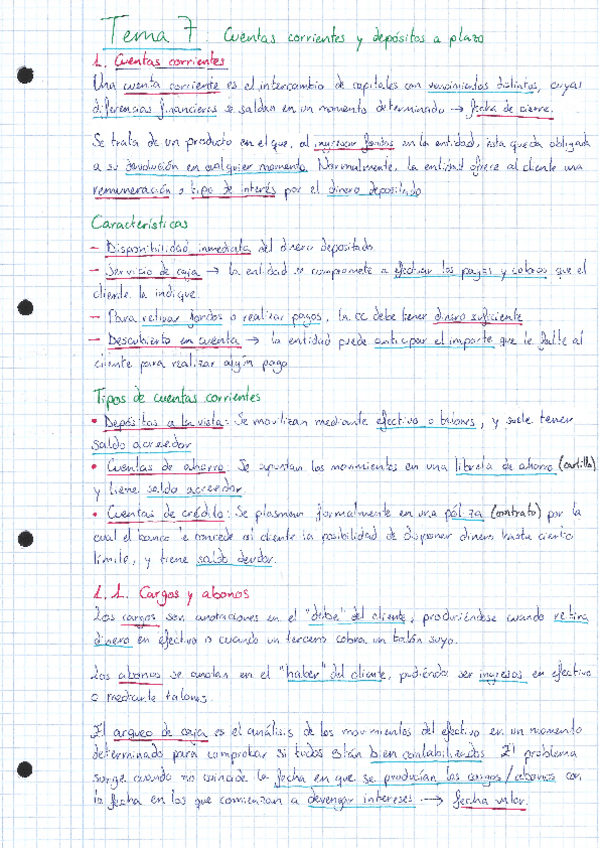 Tema 7: Cuentas corrientes y depósitos a plazo
1. Cuentas corrientes
Una cuenta corriente es el intercambio de capitales con vencimientos distintos, cuyas
diferencias financieras se saldan en un momento determinado → fecha de cierre.
Se trata de un producto en el que, al ingresar fondos en la entidad, ésta queda obligada
a su devolución en cualquier momento. Normalmente, la entidad ofrece al cliente una
remuneración o tipo de interés por el dinero depositado.
Características
– Disponibilidad inmediata del dinero depositado
– Servicio de caja → la entidad se compromete a efectuar los pagos y cobros que el
cliente la indique.
– Para retirar fondos o realizar pagos, la cc debe tener dinero suficiente
– Descubierto en cuenta → la entidad puede anticipar el importe que le falte al
cliente para realizar algún pago
Tipos de cuentas corrientes
• Depósitos a la vista: Se movilizan mediante efectivo o talones, y suele tener
saldo acreedor
• Cuentas de ahorro: Se apuntan los movimientos en una libreta de ahorro (cartilla)
y tiene saldo acreedor
• Cuentas de crédito: Se plasman formalmente en una póliza (contrato) por la
cual el banco concede al cliente la posibilidad de disponer dinero hasta cierto
límite, y tiene saldo deudor.
1.1. Cargos y abonos
Los cargos son anotaciones en el "debe" del cliente, produciéndose cuando retira
dinero en efectivo o cuando un tercero cobra un talón suyo.
Los abonos se anotan en el "haber" del cliente, pudiendo ser ingresos en efectivo
o mediante talones.
El arqueo de caja es el análisis de los movimientos del efectivo en un momento
determinado para comprobar si todos están bien contabilizados. El problema
surge cuando no coincide la fecha en que se producían los cargos/abonos con
la fecha en los que comienzan a devengar intereses → fecha valor.